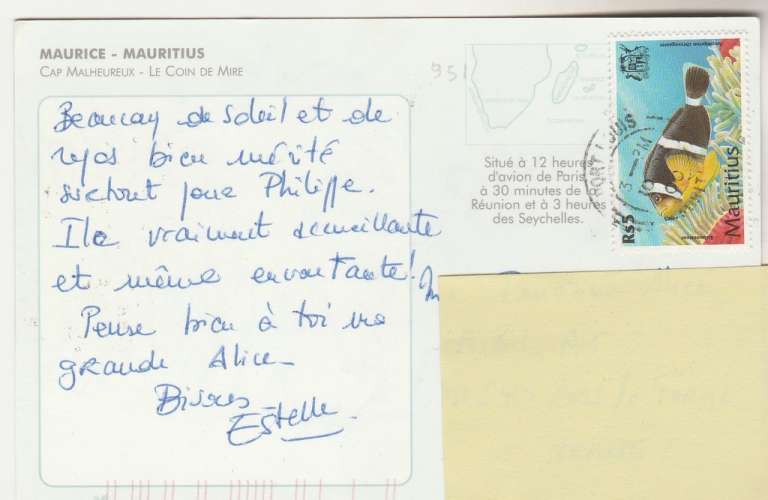 MAURICE - MAURITIUS
CAP MALHEUREUX - LE COIN DE MIRE
951
Beaucoup de soleil et de
repos bien mérité
surtout pour Philippe.
Ile vraiment accueillante
et même envoutante!
Pense bien à toi ma
grande Alice
Bisous
Estelle
Situé à 12 heures
d'avion de Paris,
à 30 minutes de
Réunion et à 3 heures
des Seychelles.
PORT LOUIS
Rs5
Mauritius